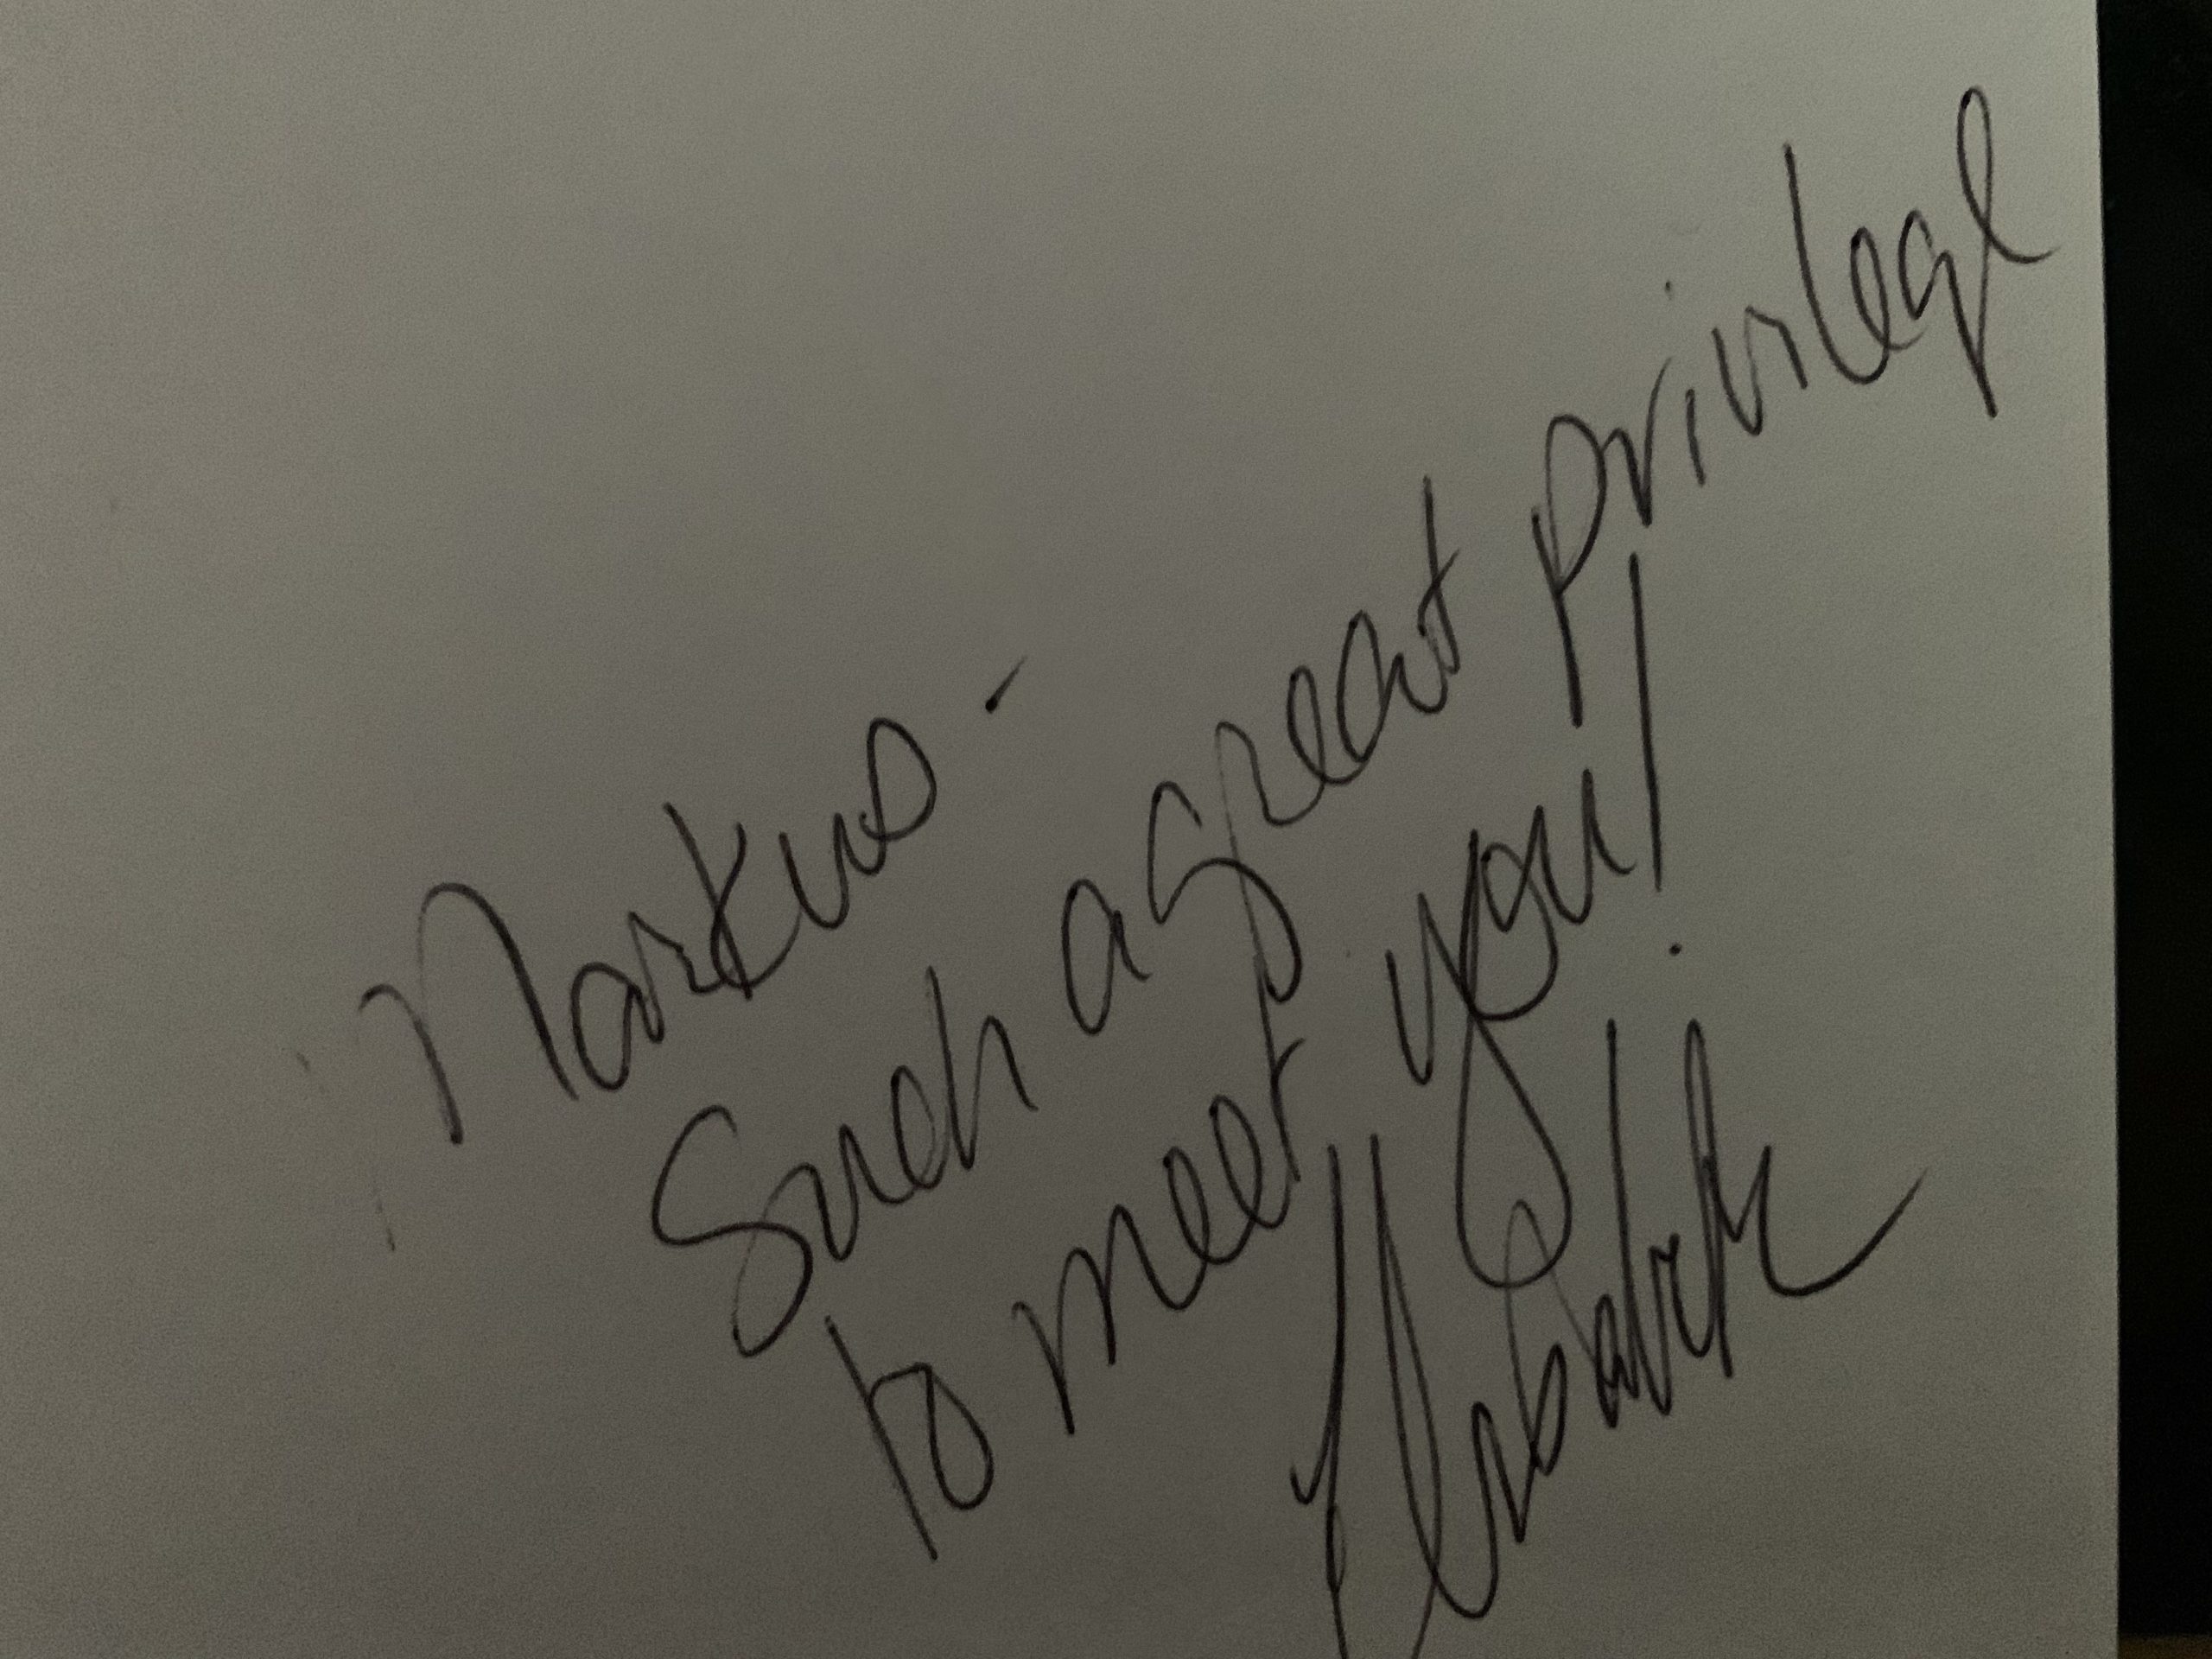 Markus -
Such a great privilege
to meet you!